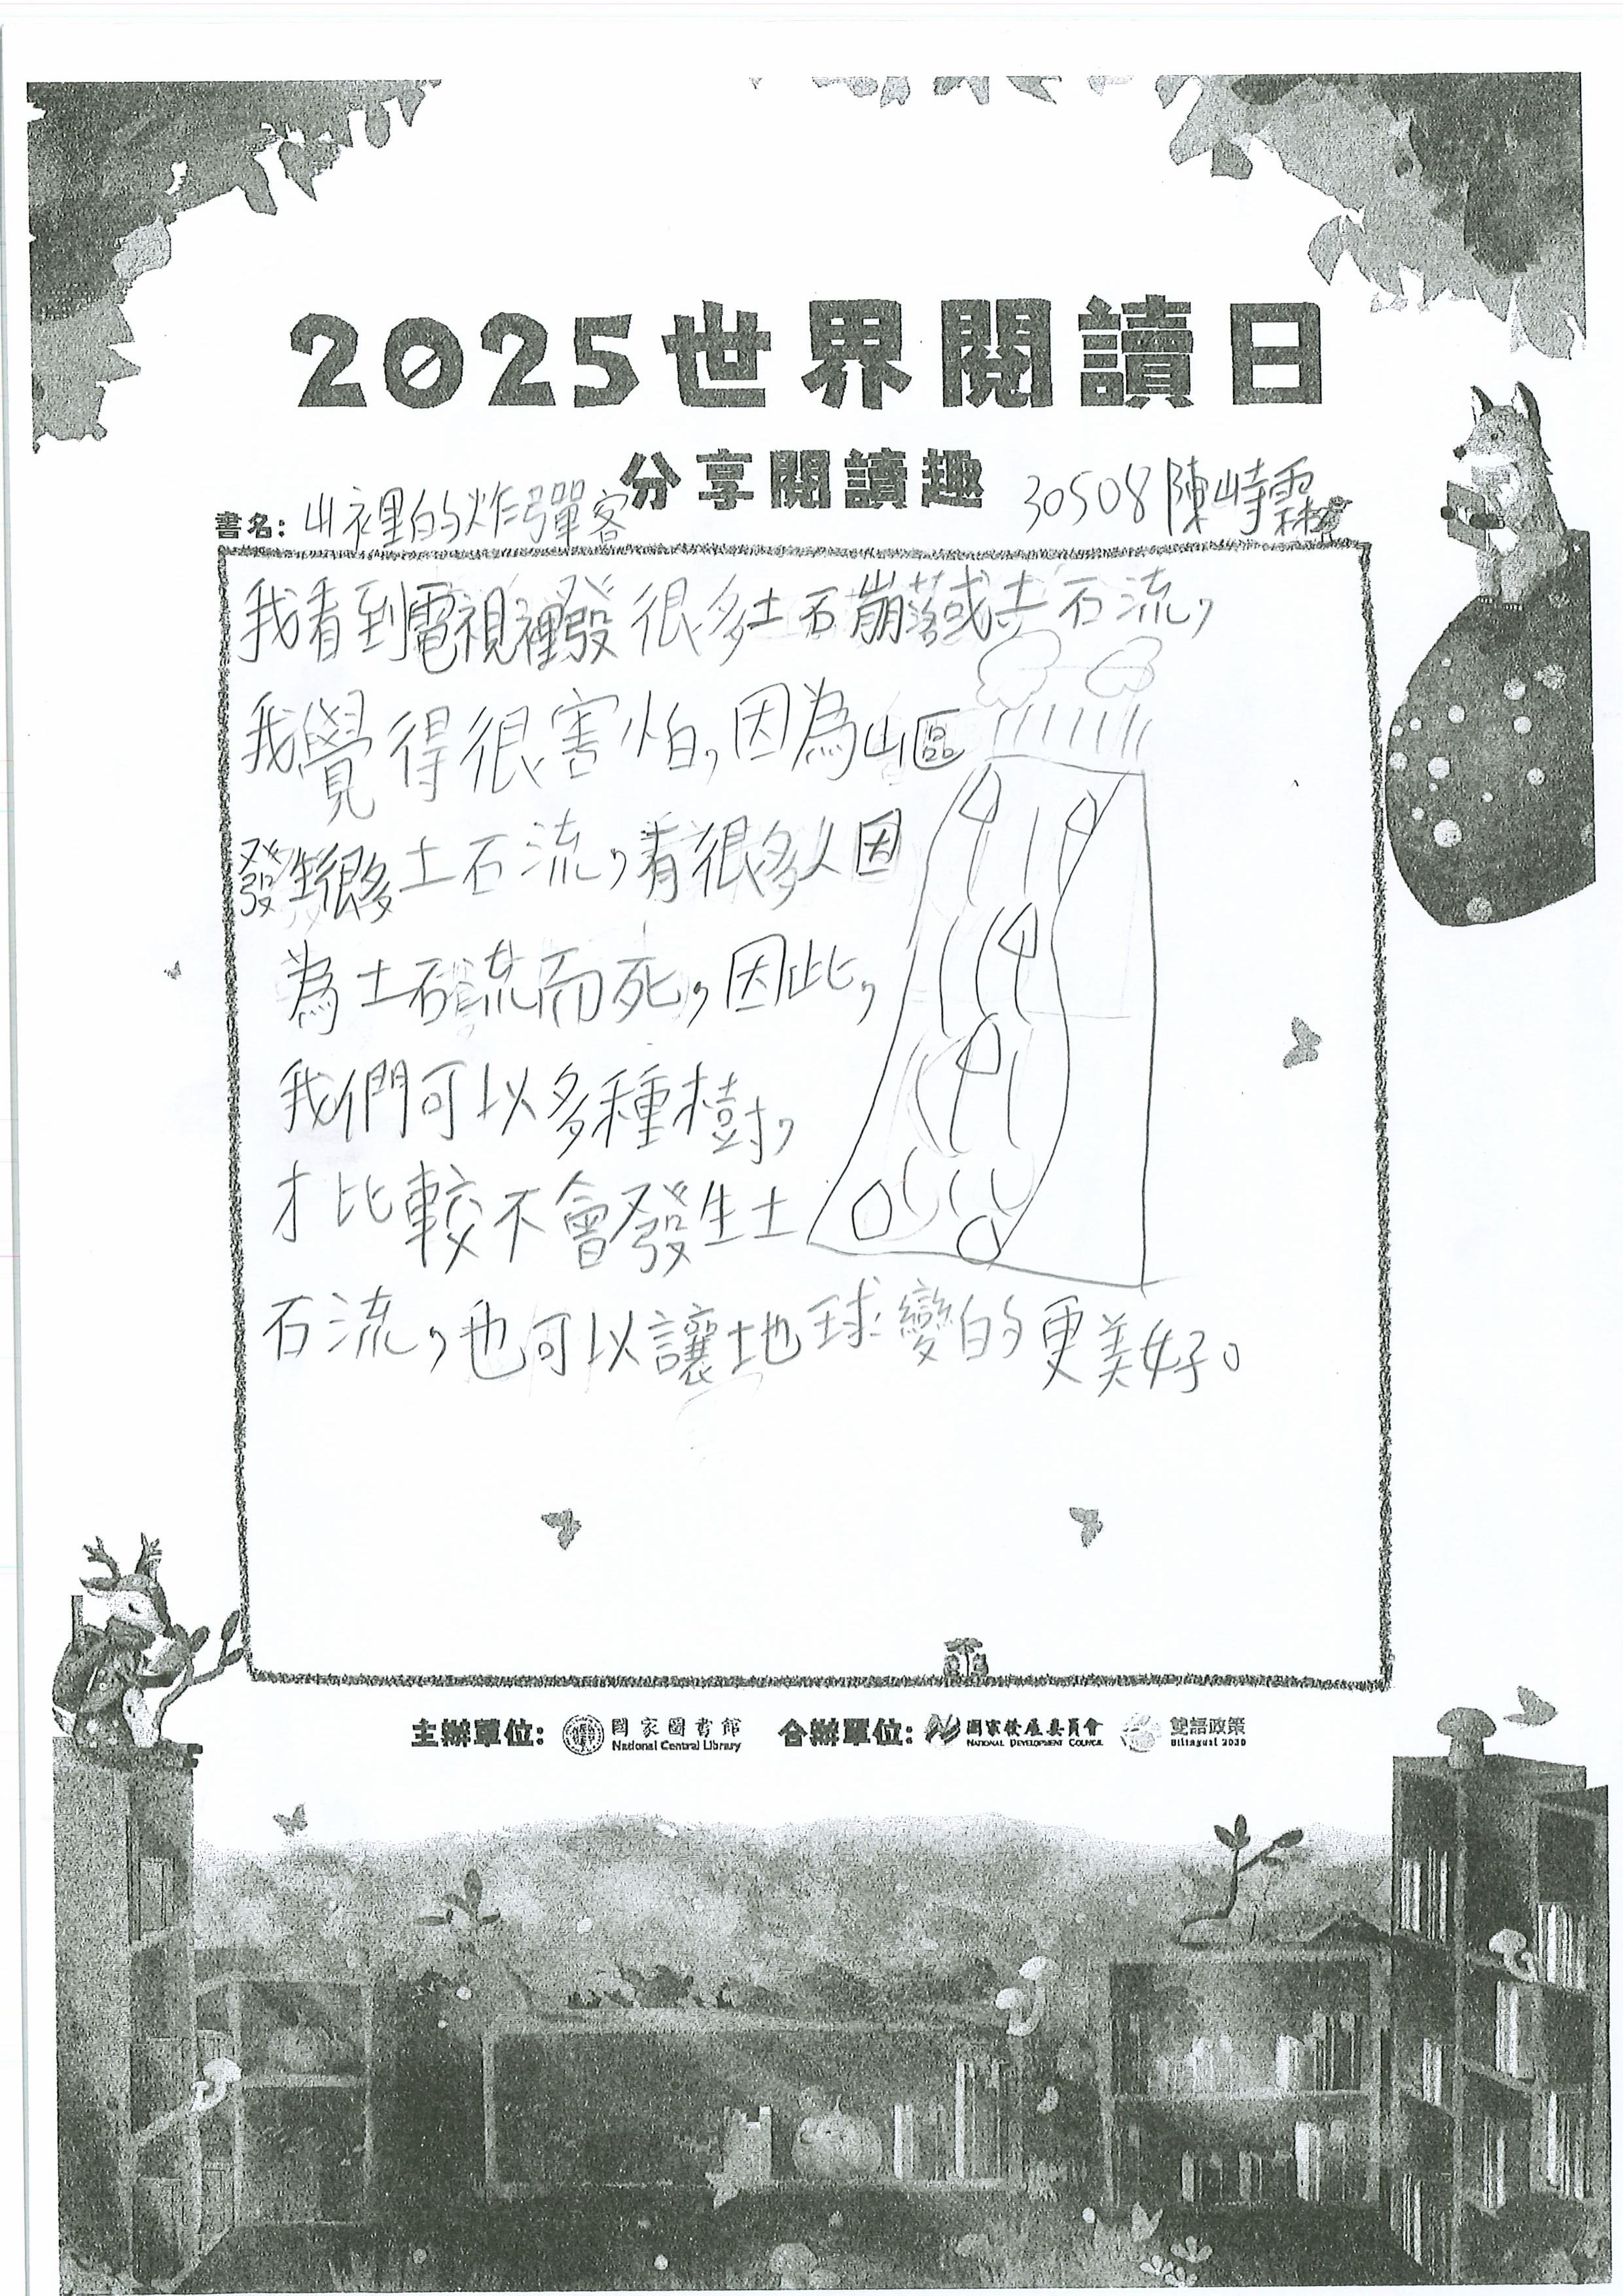 2025世界閱讀日
分享閱讀趣
書名：山裡的炸彈客
30508陳峙霖
我看到電視裡發很多土石崩落或土石流，
我覺得很害怕，因為山區
發生很多土石流，有很多人因
為土石流而死，因此，
我們可以多種樹，
才比較不會發生土
石流，也可以讓地球變的更美好。
主辦單位：國家圖書館 National Central Library 合辦單位：國家發展委員會 NATIONAL DEVELOPMENT COUNCIL 雙語政策 Bilingual 2030